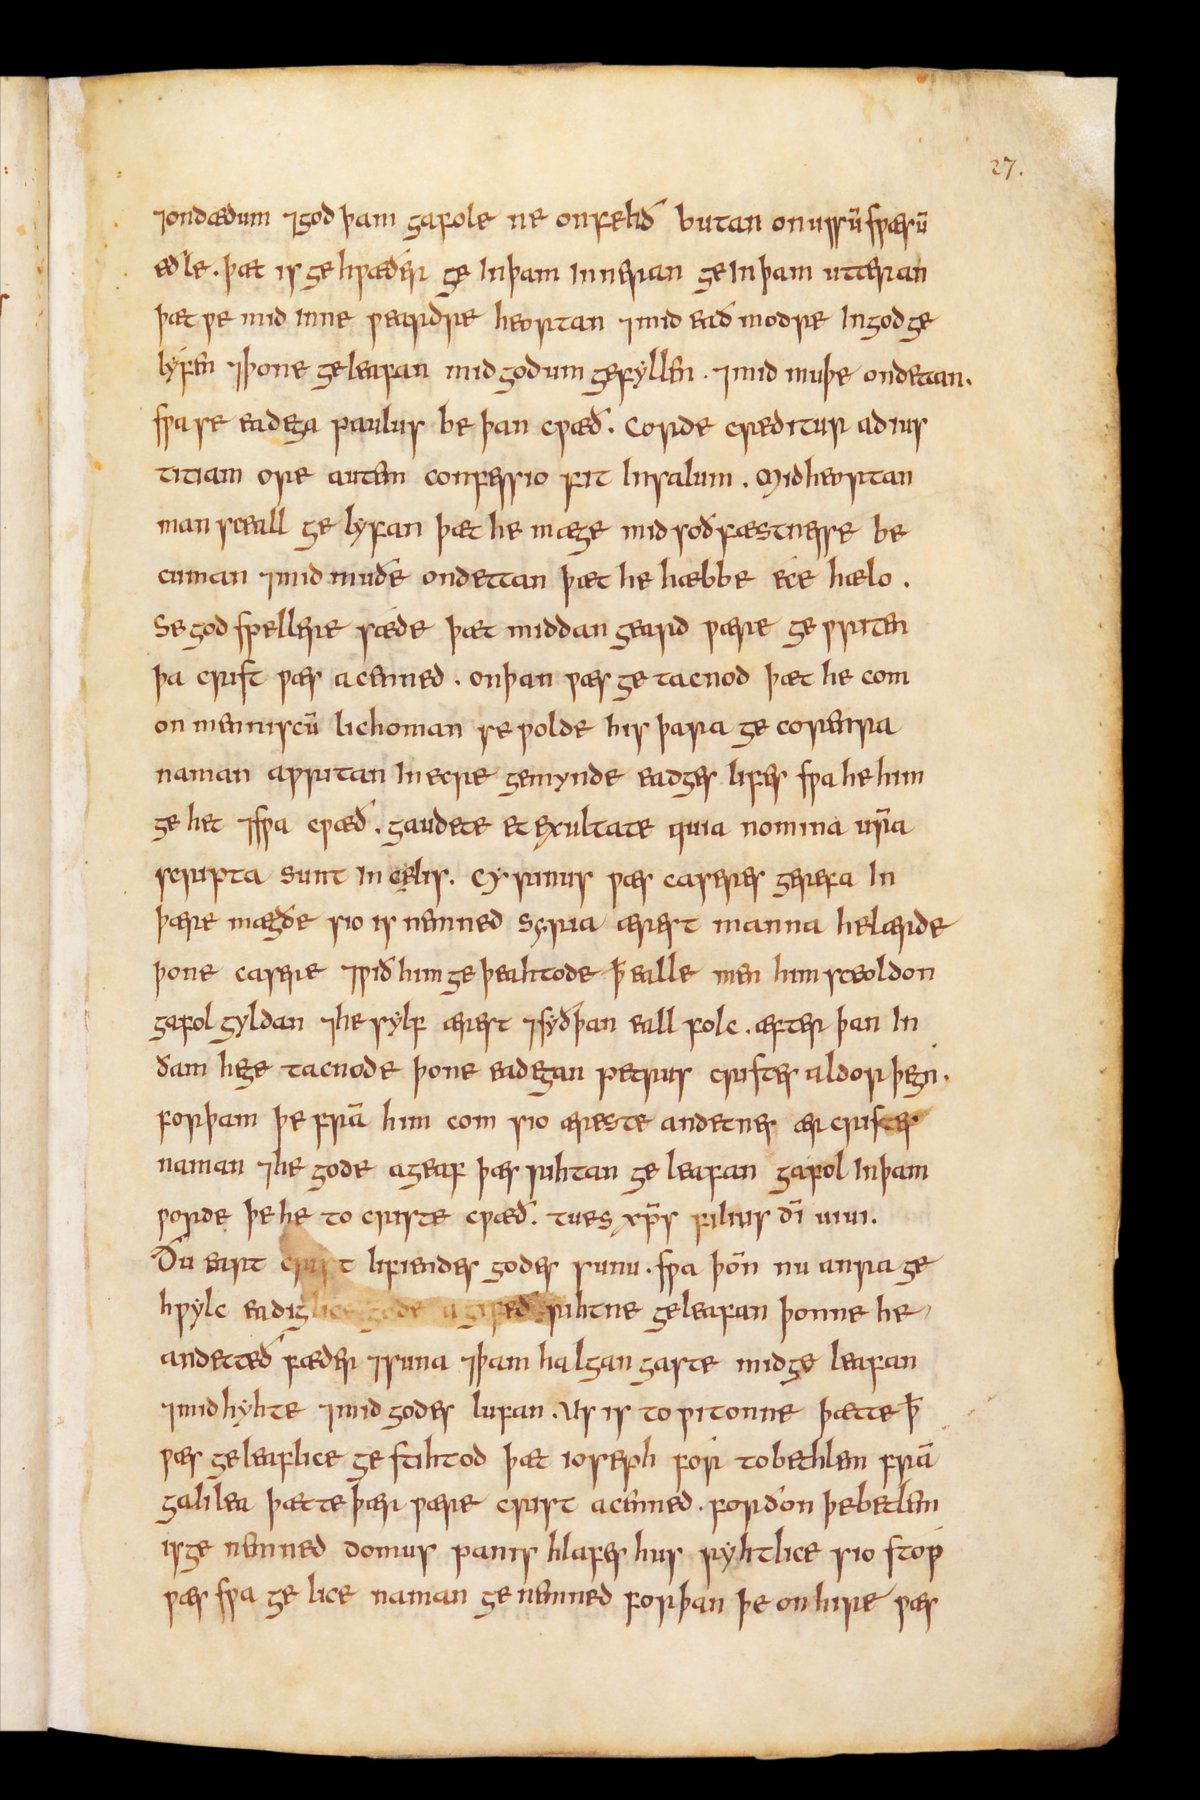 27.
⁊ondædum ⁊god þam gafole ne onfehð butan onussū sƿærū
eðle. þæt is gehƿæðer ge Inþam Inneran geInþam utteran
þæt ƿe mid Inne ƿeardre heortan ⁊mid eað modre Ingod ge
lyfen ⁊þone geleafan mid godum gefyllen. ⁊mid muþe ondetan.
sƿa se eadega paulus be þan cƿæð. Corde creditur adius
titiam ore autem confessio fit Insalum. Midheortan
man sceall ge lyfan þæt he mæge mid soðfæstnesse be
cuman ⁊mid muðe ondettan þæt he hæbbe éce hælo.
Se god spellere sæde þæt middan geard ƿære ge ƿriten
þa crist ƿæs acenned. onþan ƿæs ge tacnod þæt he com
on menniscū lichoman se ƿolde his þara ge corenra
naman aƿritan Inecre gemynde eadges lifes sƿa he him
ge het ⁊sƿa cƿæð. gaudete et exultate quia nomina ur̄a
scripta sunt In cęlis. Cyrinus ƿæs caseres gerefa In
þære mægðe sio is nemned Syria ærest manna helærde
þone casere ⁊ƿið him ge þeahtode ꝥ ealle men him sceoldon
gafol gyldan ⁊he sylf ærest ⁊syðþan eall folc. æfter þan In
ðam hege tacnode þone eadegan petrus cristes aldor þegn.
forþam þe frā him com sio æreste andetnes ær cristes
naman ⁊he gode ageaf þæs rihtan ge leafan gafol Inþam
ƿorde þe he to criste cƿæð. tues xp̄s filius dī uiui.
Ðu eart crist lifiendes godes sunu. sƿa þoñ nu anra ge
hƿylc eadiglice gode agifeð rihtne geleafan þonne he
andetteð fæder ⁊suna ⁊þam halgan gaste midge leafan
⁊midhyhte ⁊mid godes lufan. Us is to ƿitonne þætte ꝥ
ƿæs geleaflice ge stihtod þæt ioseph for tobethlem frā
galilea þætte þær ƿære crist acenned. forðon þebetlem
isge nemned domus panis hlafes hus ryhtlice sio stoƿ
ƿæs sƿa ge lice naman ge nemned forþan þe on hire ƿæs